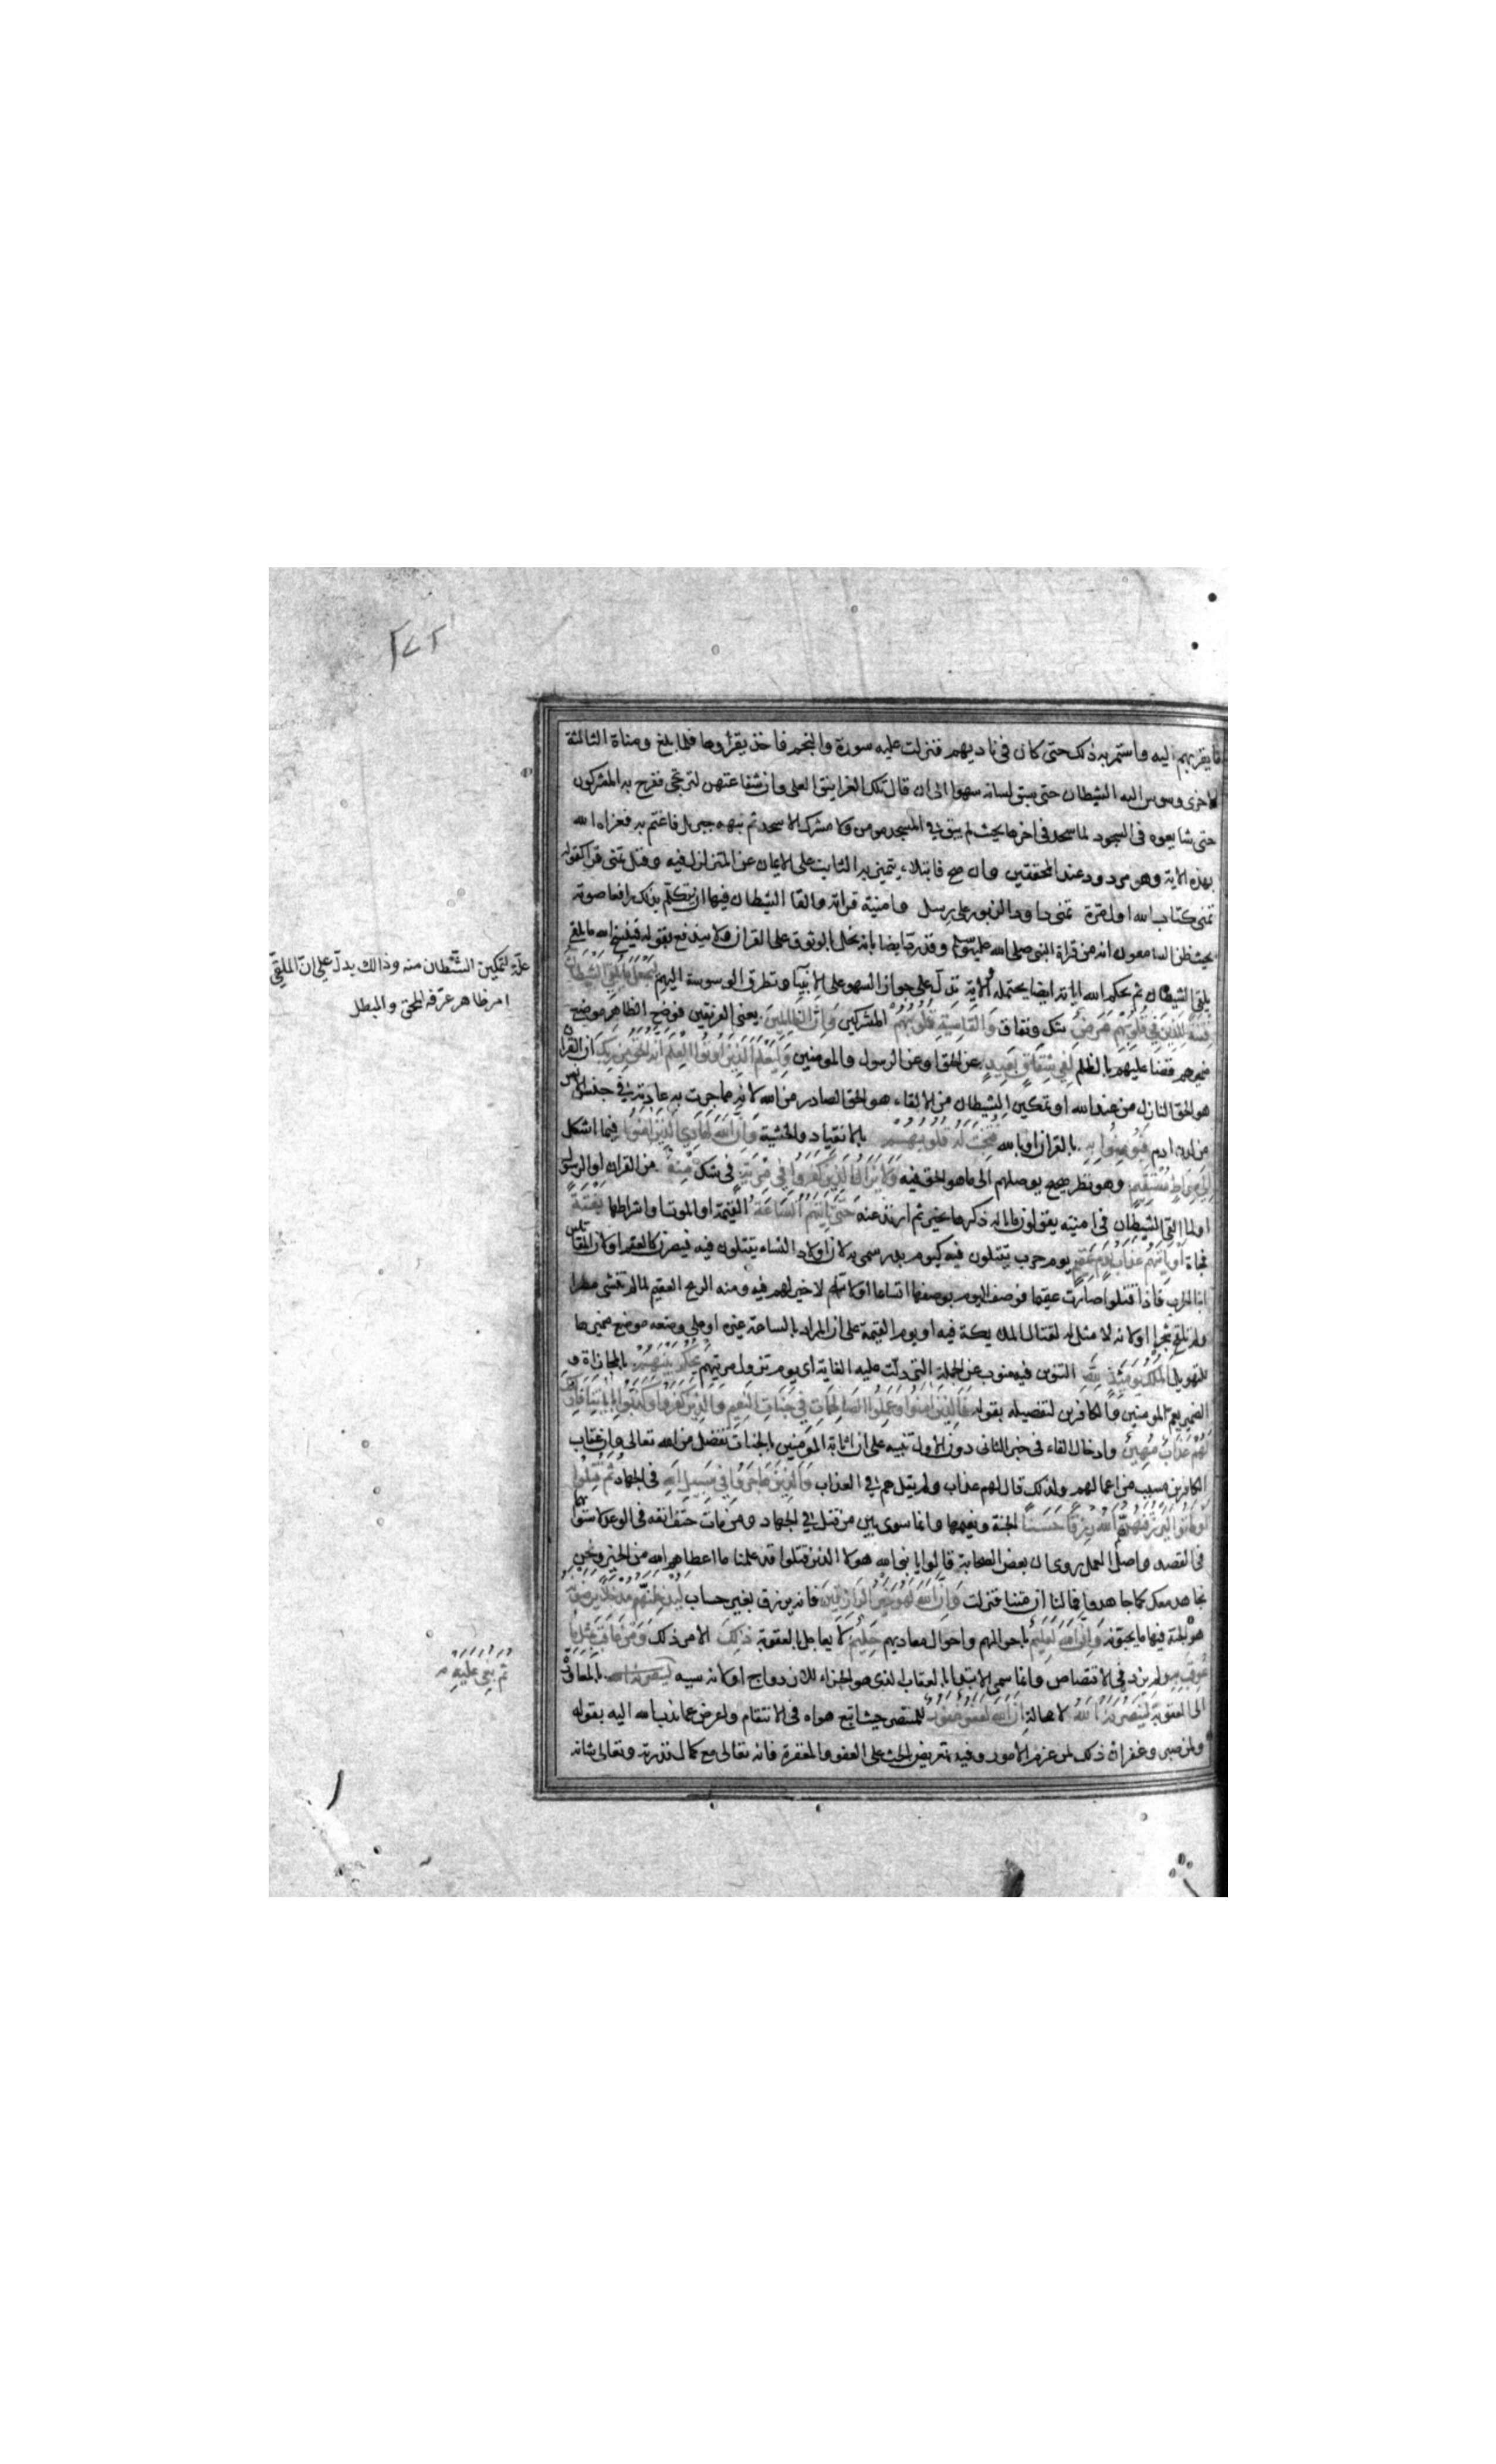 ما يقربهم اليه واستمر به ذلك حتى كان في ناديهم فنزلت عليه سورة والنجم فاخذ يقرأوها فلما بلغ ومناة الثالثة
الاخرى وسوس اليه الشيطان حتى سبق لسانه سهوا الى ان قال تلك الغرانيق العلى وان شفاعتهن لترتجى ففرح به المشركون
حتى شايعوه في السجود لما سجد في اخرها بحيث لم يبق في المسجد مومن ولا مشرك الا سجد ثم نبهه جبريل فاغتم به فعزاه الله
بهذه الاية وهو مردود عند المحققين وان صح فابتلاء يتميز به الثابت على الايمان عن المتزلزل فيه وقيل تمنى قرا كقوله
تمنى كتاب الله اول مرة تمنى داود الزبور على رسل وامنيته قراته والقا الشيطان فيها ان تكلم بذلك رافعا صوته
بحيث ظن السامعون انه من قراة النبي صلى الله عليه وسلم وقد رد ايضا بانه يخل بالوثوق على القران ولا يندفع بقوله فينسخ الله ما يلقي
يلقي الشيطان ثم يحكم الله اياته ايضا يحتمله والاية تدل على جواز السهو على الانبياء وتطرق الوسوسة اليهم لِيَجْعَلَ مَا يُلْقِي الشَّيْطَانُ
فِتْنَةً لِلَّذِينَ فِي قُلُوبِهِمْ مَرَضٌ شك ونفاق وَالْقَاسِيَةِ قُلُوبُهُمْ المشركين وَإِنَّ الظَّالِمِينَ يعني الفريقين فوضع الظاهر موضع
ضميرهم قضاء عليهم بالظلم لَفِي شِقَاقٍ بَعِيدٍ عن الحق او عن الرسول والمومنين وَلِيَعْلَمَ الَّذِينَ أُوتُوا الْعِلْمَ أَنَّهُ الْحَقُّ مِنْ رَبِّكَ ان القران
هو الحق النازل من عند الله او تمكين الشيطان من الالقاء هو الحق الصادر من الله لانه مما جرت به عادته في جنس الانس
من لدن ادم فَيُؤْمِنُوا بِهِ بالقران او بالله فَتُخْبِتَ لَهُ قُلُوبُهُمْ بالانقياد والخشية وَإِنَّ اللهَ لَهَادِي الَّذِينَ آمَنُوا فيما اشكل
إِلَى صِرَاطٍ مُسْتَقِيمٍ وهو نظر صحيح يوصلهم الى ما هو الحق فيه وَلَا يَزَالُ الَّذِينَ كَفَرُوا فِي مِرْيَةٍ في شك مِنْهُ من القران او الرسول
او لما القى الشيطان في امنيته يقولون ما باله ذكرها بخير ثم ارتد عنه حَتَّى تَأْتِيَهُمُ السَّاعَةُ القيمة او الموت او اشراطها بَغْتَةً
فجاة أَوْ يَأْتِيَهُمْ عَذَابُ يَوْمٍ عَقِيمٍ يوم حرب يقتلون فيه كيوم بدر سمي به لان اولاد النساء يقتلون فيه فيصرن كالعقم او لان المقاتلين
ابنا الحرب فاذا قتلوا صارت عقيما فوصف اليوم بوصفها اتساعا او لانه لا خير لهم فيه ومنه الريح العقيم لما لم تنشئ مطرا
ولم تلقح شجرا او لانه لا مثل له لقتال الملايكة فيه او يوم القيمة على ان المراد بالساعة غيره او على وضعه موضع ضميرها
للتهويل الْمُلْكُ يَوْمَئِذٍ لِلَّهِ التنوين فيه ينوب عن الجملة التي دلت عليه الغاية اي يوم تزول مريتهم يَحْكُمُ بَيْنَهُمْ بالمجازاة و
الضمير يعم المومنين والكافرين لتفصيله بقوله فَالَّذِينَ آمَنُوا وَعَمِلُوا الصَّالِحَاتِ فِي جَنَّاتِ النَّعِيمِ وَالَّذِينَ كَفَرُوا وَكَذَّبُوا بِآيَاتِنَا فَأُولَئِكَ
لَهُمْ عَذَابٌ مُهِينٌ وادخال الفاء في خبر الثاني دون الاول تنبيه على ان اثابة المومنين بالجنات تفضل من الله تعالى وان عقاب
الكافرين مسبب من اعمالهم ولذلك قال لهم عذاب ولم يقل هم في العذاب وَالَّذِينَ هَاجَرُوا فِي سَبِيلِ اللهِ في الجهاد ثُمَّ قُتِلُوا
أَوْ مَاتُوا لَيَرْزُقَنَّهُمُ اللهُ رِزْقًا حَسَنًا الجنة ونعيمها وانما سوى بين من قتل في الجهاد ومن مات حتف انفه في الوعد لاستوائهما
في القصد واصل العمل روي ان بعض الصحابة قالوا يا نبي الله هولا الذين قتلوا قد علمنا ما اعطاهم الله من الخير ونحن
نجاهد معك كما جاهدوا فما لنا ان متنا فنزلت وَإِنَّ اللهَ لَهُوَ خَيْرُ الرَّازِقِينَ فانه يرزق بغير حساب لَيُدْخِلَنَّهُمْ مُدْخَلًا يَرْضَوْنَهُ
هو الجنة فيها ما يحبونه وَإِنَّ اللهَ لَعَلِيمٌ باحوالهم واحوال معاديهم حَلِيمٌ لا يعاجل بالعقوبة ذَلِكَ الامر ذلك وَمَنْ عَاقَبَ بِمِثْلِ مَا
عُوقِبَ بِهِ ولم يزد في الاقتصاص وانما سمي الابتدا بالعقاب الذي هو الجزاء للازدواج او لانه سببه لينصرنه الله بالمعاودة
الى العقوبة لَيَنْصُرَنَّهُ اللهُ لا محالة إِنَّ اللهَ لَعَفُوٌّ غَفُورٌ للمنتصر حيث اتبع هواه في الانتقام واعرض عما ندب الله اليه بقوله
ولمن صبر وغفر ان ذلك لمن عزم الامور وفيه تعريض بالحث على العفو والمغفرة فانه تعالى مع كمال قدرته وتعالى شانه
علّة لتمكين الشَّيْطان منه وذالك يدلّ على انّ الملقيّ
امر ظاهر عرفه المحق والمبطل
ثُمَّ بُغِيَ عَلَيْهِ